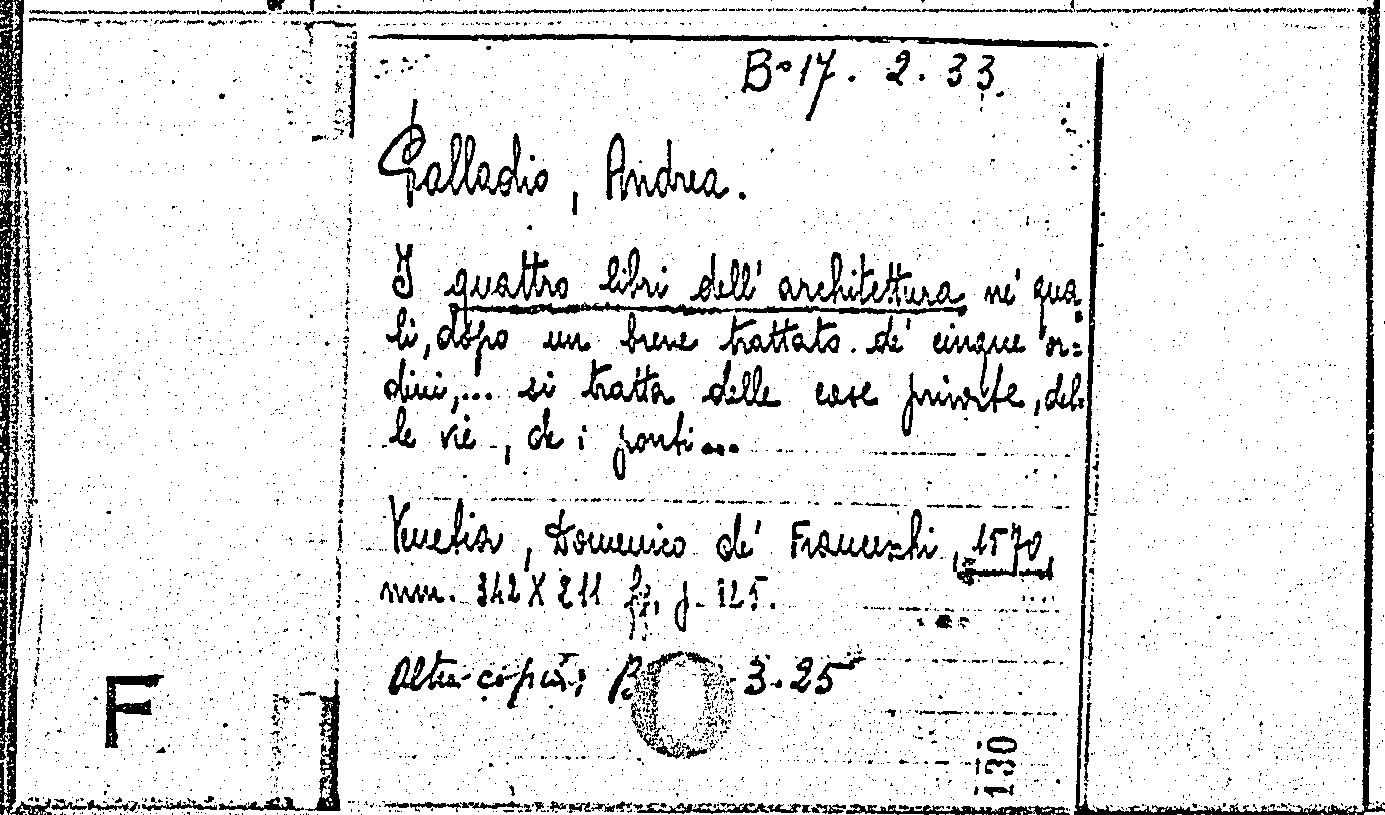 B° 17. 2. 33.
Palladio, Andrea.
I quattro libri dell'architettura, ne' qua
li, dopo un breve trattato de' cinque or=
dini,... si tratta delle case private, del
le vie, de i ponti...
Venetia, Domenico de' Franceschi, 1570,
mm. 342 X 211
Altra copia: 3.25
F
130